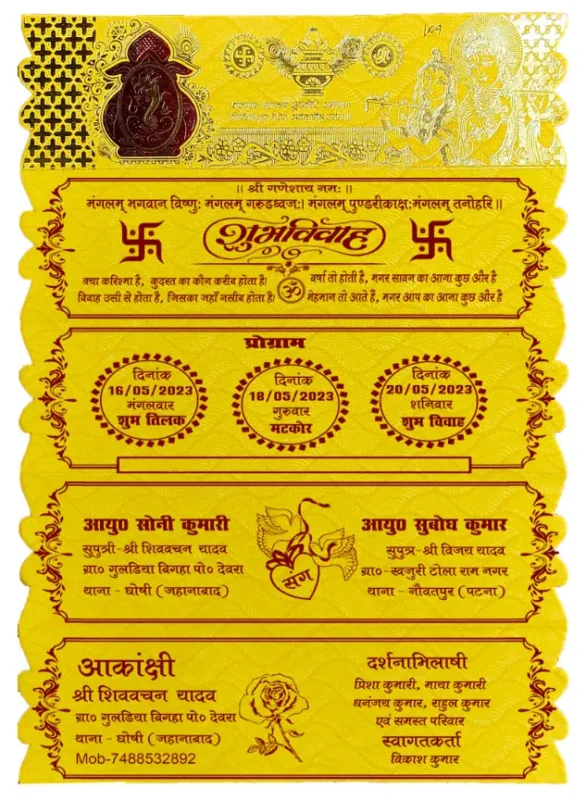 1009
|| श्री गणेशाय नमः ||
मंगलम् भगवान विष्णुः मंगलम् गरुडध्वजः। मंगलम् पुण्डरीकाक्षःमंगलम् तनोहरि ||
शुभविवाह
क्या करिश्मा है, कुदरत का कौन करीब होता है।
विवाह उसी से होता है, जिसका जहाँ नसीब होता है।
ॐ
वर्षा तो होती है, मगर सावन का आना कुछ और है
मेहमान तो आते है, मगर आप का आना कुछ और है
प्रोग्राम
दिनांक
16/05/2023
मंगलवार
शुभ तिलक
दिनांक
18/05/2023
गुरुवार
मटकोर
दिनांक
20/05/2023
शनिवार
शुभ विवाह
आयु० सोनी कुमारी
सुपुत्री-श्री शिववचन यादव
ग्रा० गुलडिया बिगहा पो० देवरा
थाना - घोषी (जहानाबाद)
संग
आयु० सुबोध कुमार
सुपुत्र-श्री विजय यादव
ग्रा०-खजुरी टोला राम नगर
थाना - नौवतपुर (पटना)
आकांक्षी
श्री शिववचन यादव
ग्रा० गुलडिया बिगहा पो० देवरा
थाना - घोषी (जहानाबाद)
Mob-7488532892
दर्शनाभिलाषी
प्रिशा कुमारी, माया कुमारी
धनंजय कुमार, राहुल कुमार
एवं समस्त परिवार
स्वागतकर्ता
विकाश कुमार